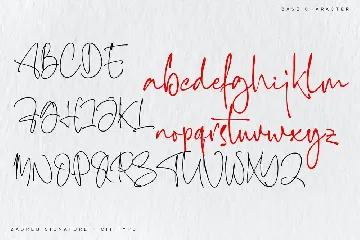 BASIC CHARACTER
ABCDE
FGHIJKL
MNOPQRSTUVWXYZ
abcdefghijklm
nopqrstuvwxyz
ZAGREB SIGNATURE